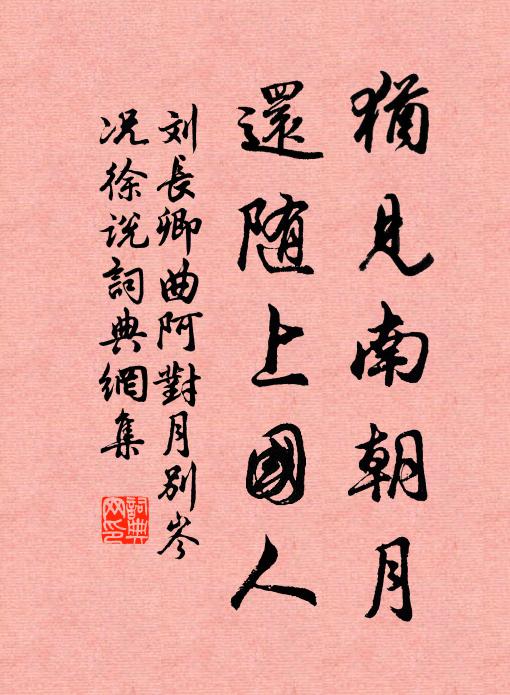 猶見南朝月
還随上國人
刘長卿曲阿對月別岑
况徐说詞典網集
詞典网印